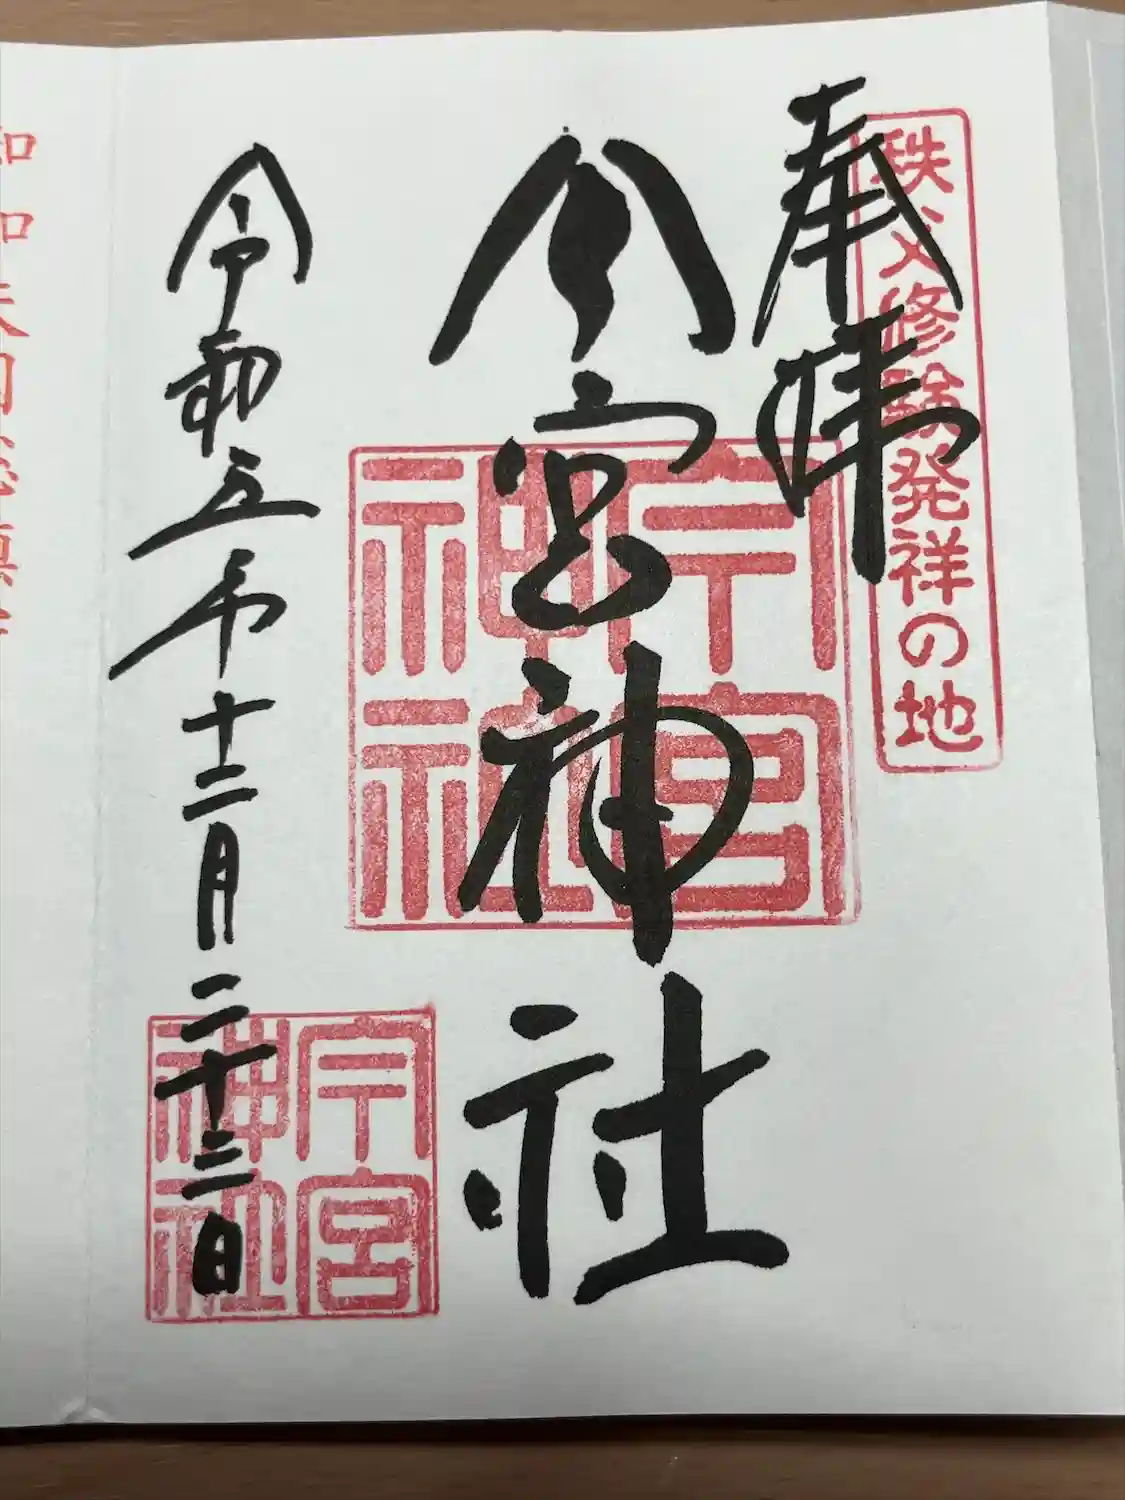 奉拝
秩父修験発祥の地
今宮神社
今宮
神社
令和五年十二月二十三日
今宮
神社